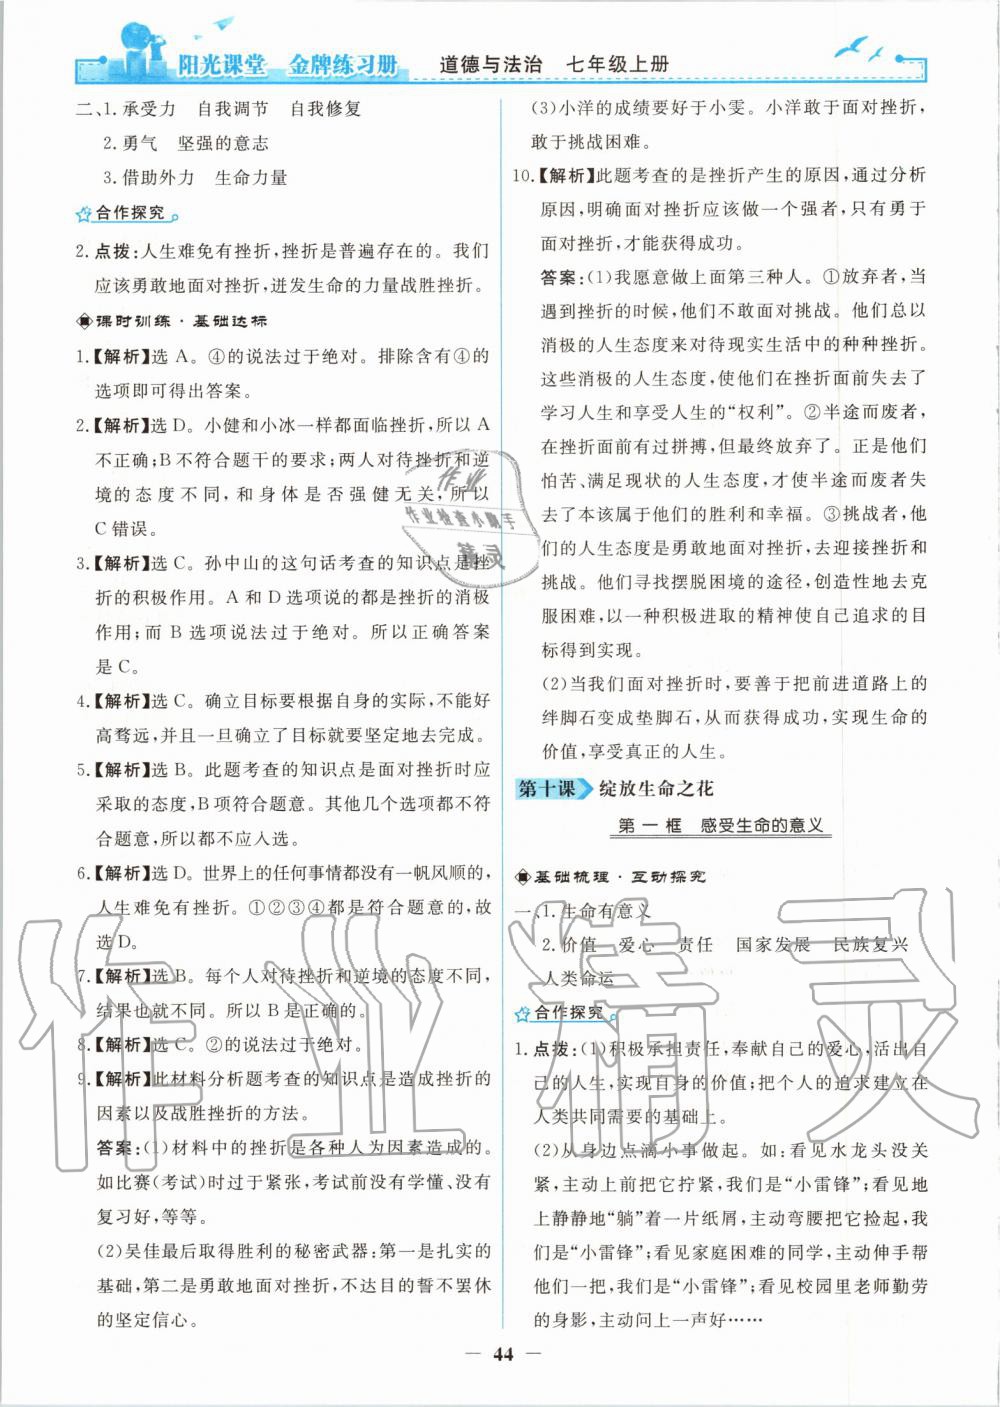 阳光课堂 金牌练习册 道德与法治 七年级上册
二、1.承受力 自我调节 自我修复
2.勇气 坚强的意志
3.借助外力 生命力量
合作探究
2.点拨:人生难免有挫折,挫折是普遍存在的。我们
应该勇敢地面对挫折,迸发生命的力量战胜挫折。
课时训练·基础达标
1.【解析】选 A。④的说法过于绝对。排除含有④的
选项即可得出答案。
2.【解析】选 D。小健和小冰一样都面临挫折,所以 A
不正确;B 不符合题干的要求;两人对待挫折和逆
境的态度不同,和身体是否强健无关,所以
C 错误。
3.【解析】选 C。孙中山的这句话考查的知识点是挫
折的积极作用。A 和 D 选项说的都是挫折的消极
作用;而 B 选项说法过于绝对。所以正确答案
是 C。
4.【解析】选 C。确立目标要根据自身的实际,不能好
高骛远,并且一旦确立了目标就要坚定地去完成。
5.【解析】选 B。此题考查的知识点是面对挫折时应
采取的态度,B 项符合题意。其他几个选项都不符
合题意,所以都不应入选。
6.【解析】选 D。世界上的任何事情都没有一帆风顺的,
人生难免有挫折。①②③④都是符合题意的,故
选 D。
7.【解析】选 B。每个人对待挫折和逆境的态度不同,
结果也就不同。所以 B 是正确的。
8.【解析】选 C。②的说法过于绝对。
9.【解析】此材料分析题考查的知识点是造成挫折的
因素以及战胜挫折的方法。
答案:(1)材料中的挫折是各种人为因素造成的。
如比赛(考试)时过于紧张,考试前没有学懂、没有
复习好,等等。
(2)吴佳最后取得胜利的秘密武器:第一是扎实的
基础,第二是勇敢地面对挫折,不达目的誓不罢休
的坚定信心。
(3)小洋的成绩要好于小雯。小洋敢于面对挫折,
敢于挑战困难。
10.【解析】此题考查的是挫折产生的原因,通过分析
原因,明确面对挫折应该做一个强者,只有勇于
面对挫折,才能获得成功。
答案:(1)我愿意做上面第三种人。①放弃者,当
遇到挫折的时候,他们不敢面对挑战。他们总以
消极的人生态度来对待现实生活中的种种挫折。
这些消极的人生态度,使他们在挫折面前失去了
学习人生和享受人生的“权利”。②半途而废者,
在挫折面前有过拼搏,但最终放弃了。正是他们
怕苦、满足现状的人生态度,才使半途而废者失
去了本该属于他们的胜利和幸福。③挑战者,他
们的人生态度是勇敢地面对挫折,去迎接挫折和
挑战。他们寻找摆脱困境的途径,创造性地去克
服困难,以一种积极进取的精神使自己追求的目
标得以实现。
(2)当我们面对挫折时,要善于把前进道路上的
绊脚石变成垫脚石,从而获得成功,实现生命的
价值,享受真正的人生。
第十课 绽放生命之花
第一框 感受生命的意义
基础梳理·互动探究
一、1.生命有意义
2.价值 爱心 责任 国家发展 民族复兴
人类命运
合作探究
1.点拨:(1)积极承担责任,奉献自己的爱心,活出自
己的人生,实现自身的价值;把个人的追求建立在
人类共同需要的基础上。
(2)从身边点滴小事做起。如:看见水龙头没关
紧,主动上前把它拧紧,我们是“小雷锋”;看见地
上静静地“躺”着一片纸屑,主动弯腰把它捡起,我
们是“小雷锋”;看见家庭困难的同学,主动伸手帮
他们一把,我们是“小雷锋”;看见校园里老师勤劳
的身影,主动问上一声好……
作业
作业检查小助手
精灵
作业精灵
— 44 —